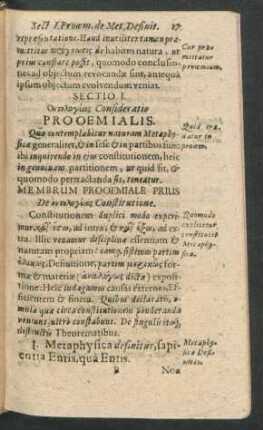 Sect. I. Prooem. de Met. Definit. 17
repræsentatione. Haud inutiliter tamen præ-
mittitur de habitus natura, ut
prius constare possit, quomodo conclusio-
nes ad objectum revocandæ sint, antequā
ipsum objectum evolvendum veniat.
Cur præ-
mittatur
prooemium.
SECTIO I.
Consideratio
PROOEMIALIS.
Qua contemplabitur naturam Metaphy-
sicæ generaliter, & in sese & in partibus suis:
ibi inquirendo in constitutionem, heic
in genuinam partitionem, ut quid sit, &
quomodo pertractanda sit, teneatur.
Quid tra-
datur in
prooem.
MEMBRUM PROOEMIALE PRIUS
De Constitutione.
Constitutionem duplici modo experi-
mur ad intro, & ad ex-
tra. Illic venamur disciplinæ essentiam &
naturam propriam: eamq́; sistemus partim
Definitione: partim for-
mæ & materiæ dicta) exposi-
tione: Heic indagamus causas externas, Ef-
ficientem & finem. Quibus declaratis, o-
mnia quæ circa constitutionem ponderanda
veniunt, ultro constabunt. De singulis itaq́;
distinctis Theorematibus.
Quomodo
explicetur
constitutio
Metaphy-
sicæ.
I. Metaphysica definitur, sapi-
entia Entis, quà Entis.
Metaphy-
sicæ Defi-
nitio.
B
Non